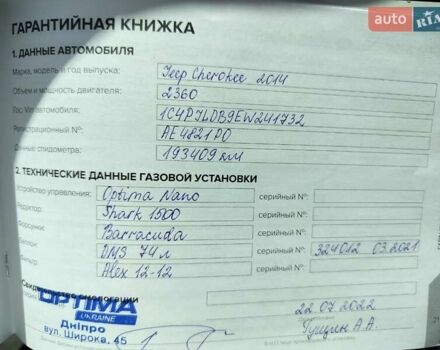 auto RIA
ГАРАНТИЙНАЯ КНИЖКА
1. ДАННЫЕ АВТОМОБИЛЯ
Марка, модель и год выпуска: Jeep Cherokee 2014
Объем и мощность двигателя: 2360
автомобиля: 1C4PJLDB9EW241732
Регистрационный №: AE4821PO
Данные спидометра: 193409 км
2. ТЕХНИЧЕСКИЕ ДАННЫЕ ГАЗОВОЙ УСТАНОВКИ
Устройство управления: Optima Nano серийный №:
Редуктор: Shark 1500 серийный №:
Форсунки: Barracuda серийный №:
Баллон: DMS 74 л серийный №: 324012 03.2021
Фильтр: Alex 12-12 серийный №:
Свидетельство
OPTIMA
UKRAINE
Дніпро
вул. Широка, 45
22.07.2022
А.А.